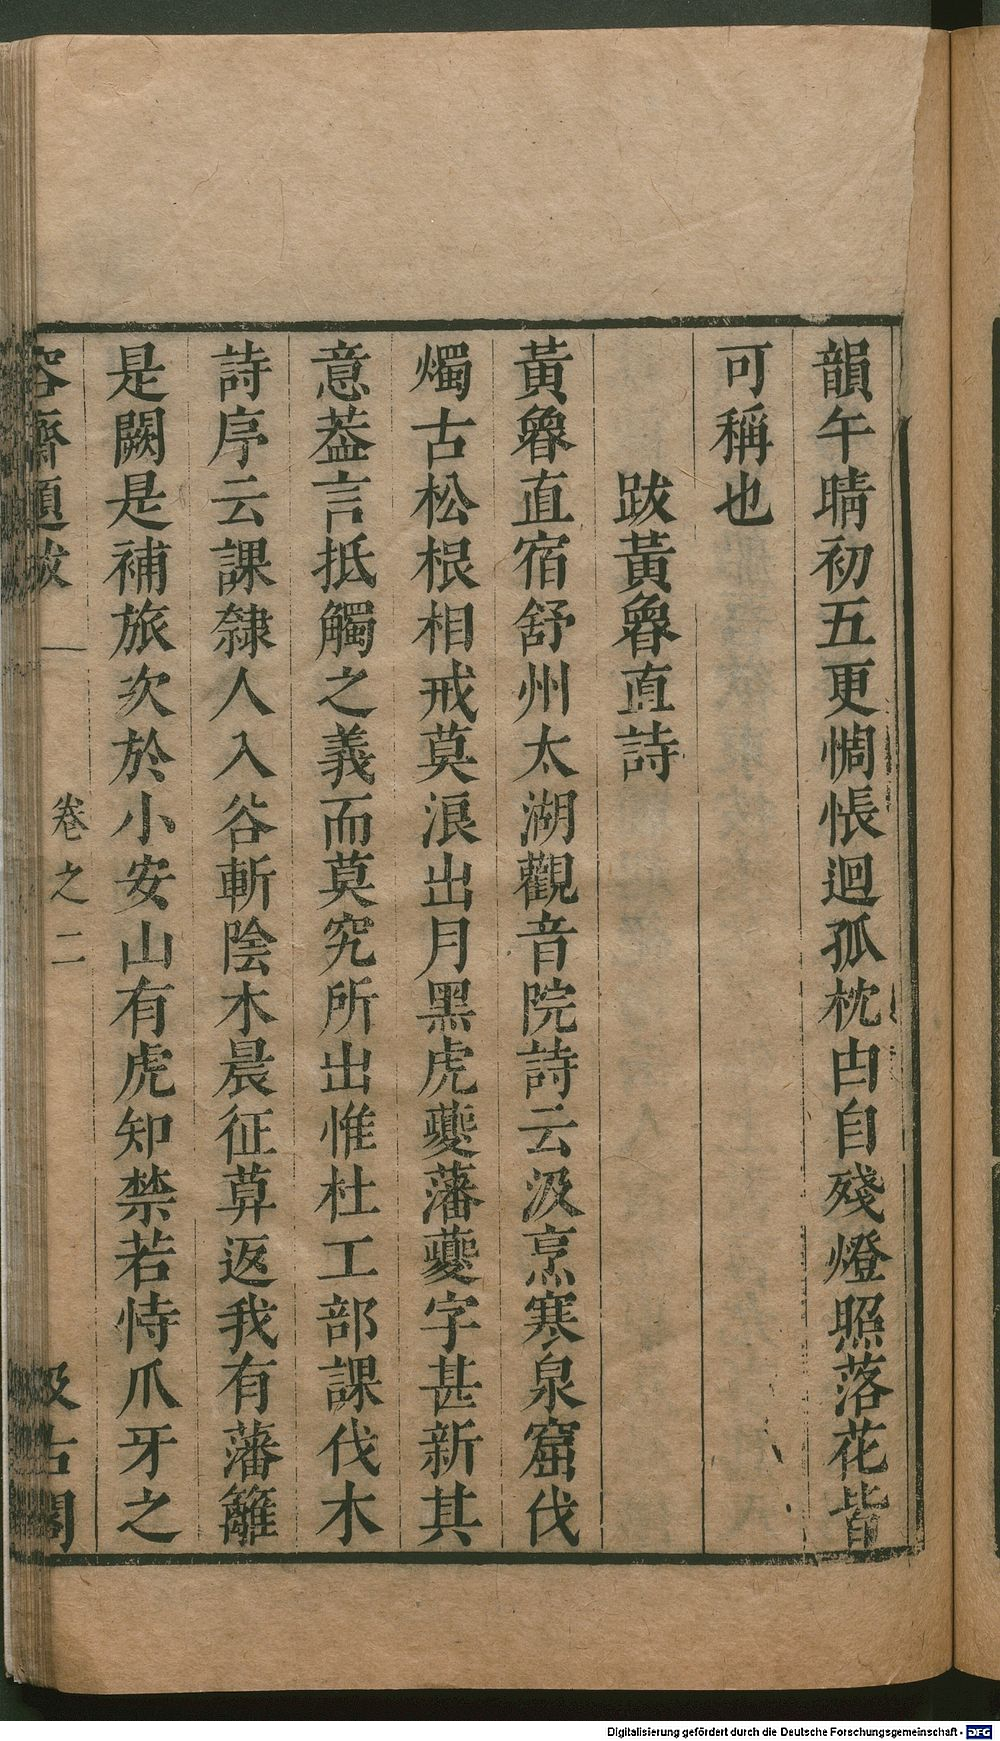 韻午晴初五更惆悵迴孤枕白自殘燈照落花皆
可稱也
跋黃魯直詩
黃魯直宿舒州太湖觀音院詩云汲烹寒泉窟伐
燭古松根相戒莫浪出月黑虎夔藩夔字甚新其
意葢言抵觸之義而莫究所出惟杜工部課伐木
詩序云課隸人入谷斬陰木晨征暮返我有藩籬
是闕是補旅次於小安山有虎知禁若恃爪牙之
容齋題跋 卷之二 汲古閣
Digitalisierung gefördert durch die Deutsche Forschungsgemeinschaft - DFG